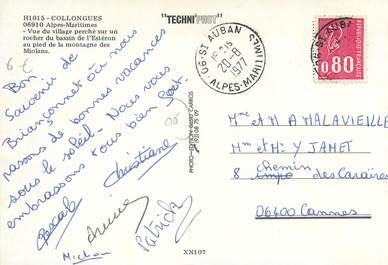 H1015 - COLLONGUES
06910 Alpes-Maritimes
- Vue du village perché sur un
rocher du bassin de l'Estéron
au pied de la montagne des
Miolans.
"TECHNI'PHOT"
06-ST AUBAN
18H15
20-8
1977
ALPES-MARITIMES
0,80
6 €
Bon
Souvenir de
Briançonnet où nous
passons de bonnes vacances
sous le soleil. Nous vous
embrassons tous bien fort.
Christiane
Pascale
Annie
Michou
Patrick
06
Mme et M A MALAVIEILLE
Mme et Mr Y JAMET
8 chemin des Caraïres
06400 Cannes
XN107